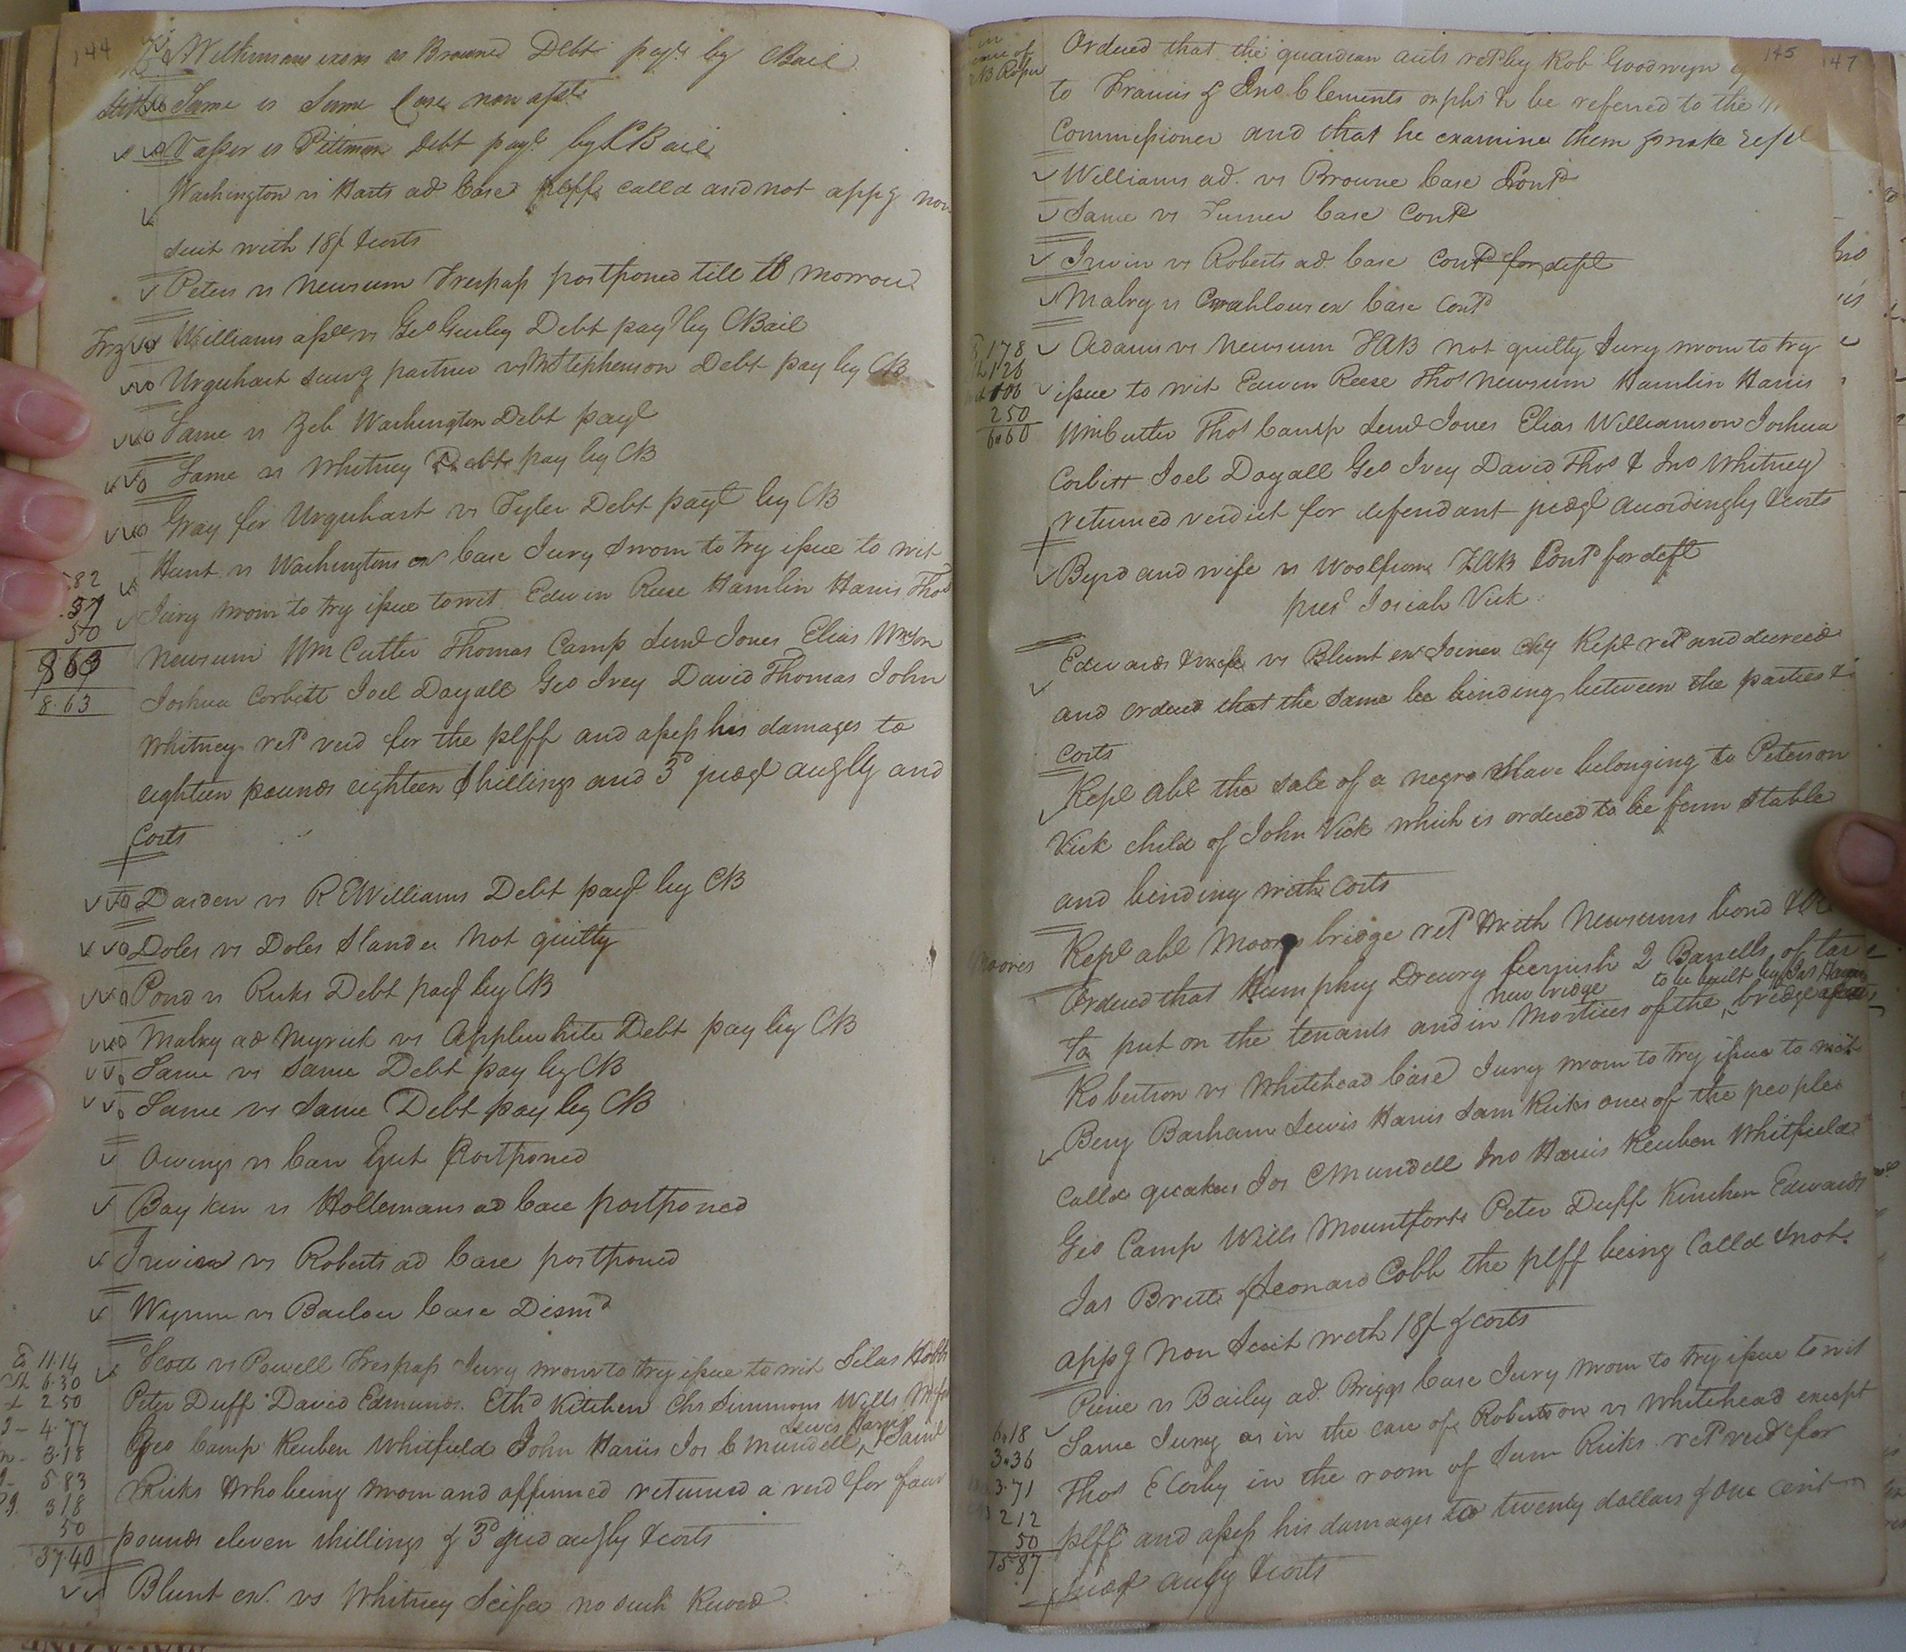 144
Wilkinsons exors vs Browne Debt payt by CBail
Same vs Same Case non asst
Vasser vs Pittman Debt payt by CBail
Washington vs Harts ad Case plff calld and not appg non
suit with 18/ & costs
Peters vs Newsum Trespass postponed till to morrow
Williams assee vs Geo Gurley Debt payt by CBail
Urquhart survg partner vs M Stephenson Debt pay by CB
Same vs Zeb Washington Debt payt
Same vs Whitney Debt pay by CB
Gray for Urquhart vs Tyler Debt payt by CB
Hunt vs Washingtons exr Case Jury sworn to try issue to wit
Jury sworn to try issue to wit Edwin Reese Hamlin Harris Thos
Newsum Wm Cutler Thomas Camp Leml Jones Elias Wmson
Joshua Corbitt Joel Dayall Geo Ivey David Thomas John
Whitney retd verd for the plff and assess his damages to
eighteen pounds eighteen shillings and 3d judgt accgly and
costs
82
37
50
863
8.63
Darden vs R Williams Debt payt by CB
Doles vs Doles Slander Not guilty
Pond vs Ricks Debt payt by CB
Malry ad Myrick vs Applewhite Debt pay by CB
Same vs Same Debt pay by CB
Same vs Same Debt pay by CB
Owings vs Carr Ejut Postponed
Boykin vs Hollemans ad Case postponed
Irwin vs Roberts ad Case postponed
Wynne vs Barlow Case Dismd
Scott vs Powell Trespass Jury sworn to try issue to wit Silas
Peter Duff David Edmunds Ethd Kitchen Chs Simmons Wills
Lewis Harris
Geo Camp Reuben Whitfield John Harris Jos C Mundell Saml
Ricks who being sworn and affirmed returned a verd for four
pounds eleven shillings & 3d jud accgly & costs
11.14
6.30
2 50
4.77
3.18
5.83
318
50
37.40
Blunt exr vs Whitney Scifa no such Record
145
147
Ordered that the guardian accts ret by Rob Goodwyn
to Francis & Jno Clements orphs to be referred to the
Commissioner and that he examine them & make rept
Williams ad. vs Browne Case Contd
Same vs Turner Case Contd
Irwin vs Roberts ad Case Contd for deft
Malry vs exr Case Contd
Adams vs Newsum TAB not guilty Jury sworn to try
issue to wit Edwin Reese Thos Newsum Hamlin Harris
Wm Cutler Thos Camp Leml Jones Elias Williamson Joshua
Corbitt Joel Dayall Geo Ivey David Thos & Jno Whitney
returned verdict for defendant judgt accordingly & costs
178
126
106
250
6.60
Byrd and wife vs Woolfrom TAB Contd for deft
prest Josiah Vick
Edwards & wife vs Blunt exr Joiner Chy Rept retd and decreed
and ordered that the same be binding between the parties &
costs
Rept abt the sale of a negro slave belonging to Peterson
Vick child of John Vick which is ordered to be firm stable
and binding with costs
Rept abt Moores bridge retd with Newsums bond &
Moores
Ordered that Humphrey Drewry furnish 2 Barrells of tar
new bridge to be built by Jas
to put on the tenants and in Mortices of the bridge
Robertson vs Whitehead Case Jury sworn to try issue to wit
Benj Barham Lewis Harris Sam Ricks one of the people
calld quakers Jos C Mundell Jno Harris Reuben Whitfield
Geo Camp Wills Mountfort Peter Duff Kinchen Edwards
Jas Britt & Leonard Cobb the plff being Calld & not
appg Non Suit with 18/ & costs
Pierce vs Bailey ad Briggs Case Jury sworn to try issue to wit
Same Jury as in the case of Robertson vs Whitehead except
Thos E Corby in the room of Sam Ricks retd verd for
plff and assess his damages to twenty dollars & one cent
judgt accgly & costs
6.18
3.36
3.71
212
50
15.87